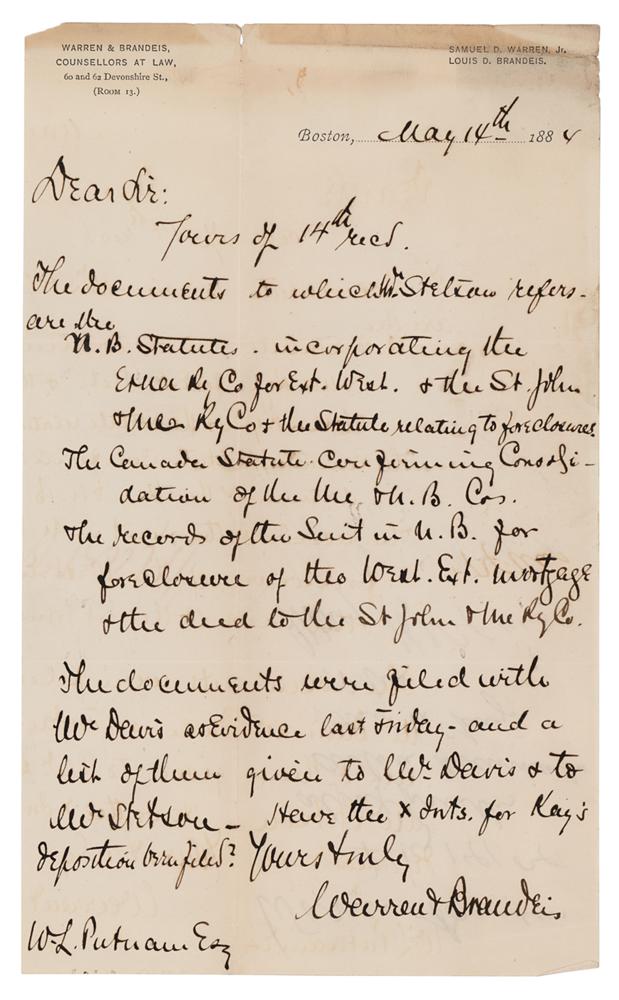 WARREN & BRANDEIS,
COUNSELLORS AT LAW,
60 and 62 Devonshire St.,
(ROOM 13.)
SAMUEL D. WARREN, Jr.
LOUIS D. BRANDEIS.
Boston, May 14th 1884
Dear Sir:
Yours of 14th recd.
The documents to which Mr Stetson refers-
are the
N. B. Statutes. incorporating the
Ry Co for Ext. West. & the St. John
& Me Ry Co & the Statute relating to foreclosures.
The Canada Statute confirming Consoli-
dation of the Me & N. B. Cos.
the records of the Suit in N. B. for
foreclosure of the West. Ext. mortgage
& the deed to the St John & Me Ry Co.
The documents were filed with
Mr Davis as Evidence last Friday - and a
list of them given to Mr. Davis & to
Mr Stetson - Have the X Ints. for Kay's
deposition been filed? Yours truly
Warren & Brandeis
W. L. Putnam Esq